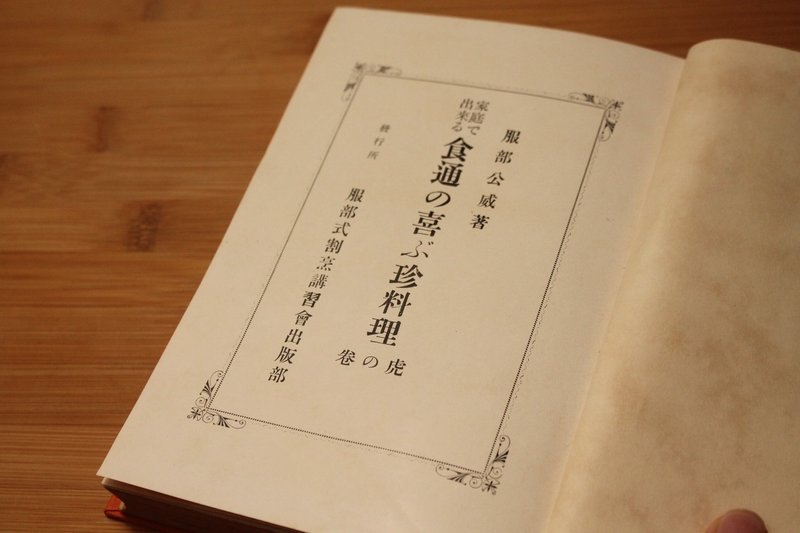 服部公威著
家庭で
出来る
食通の喜ぶ珍料理
虎の卷
發行所
服部式割烹講習會出版部